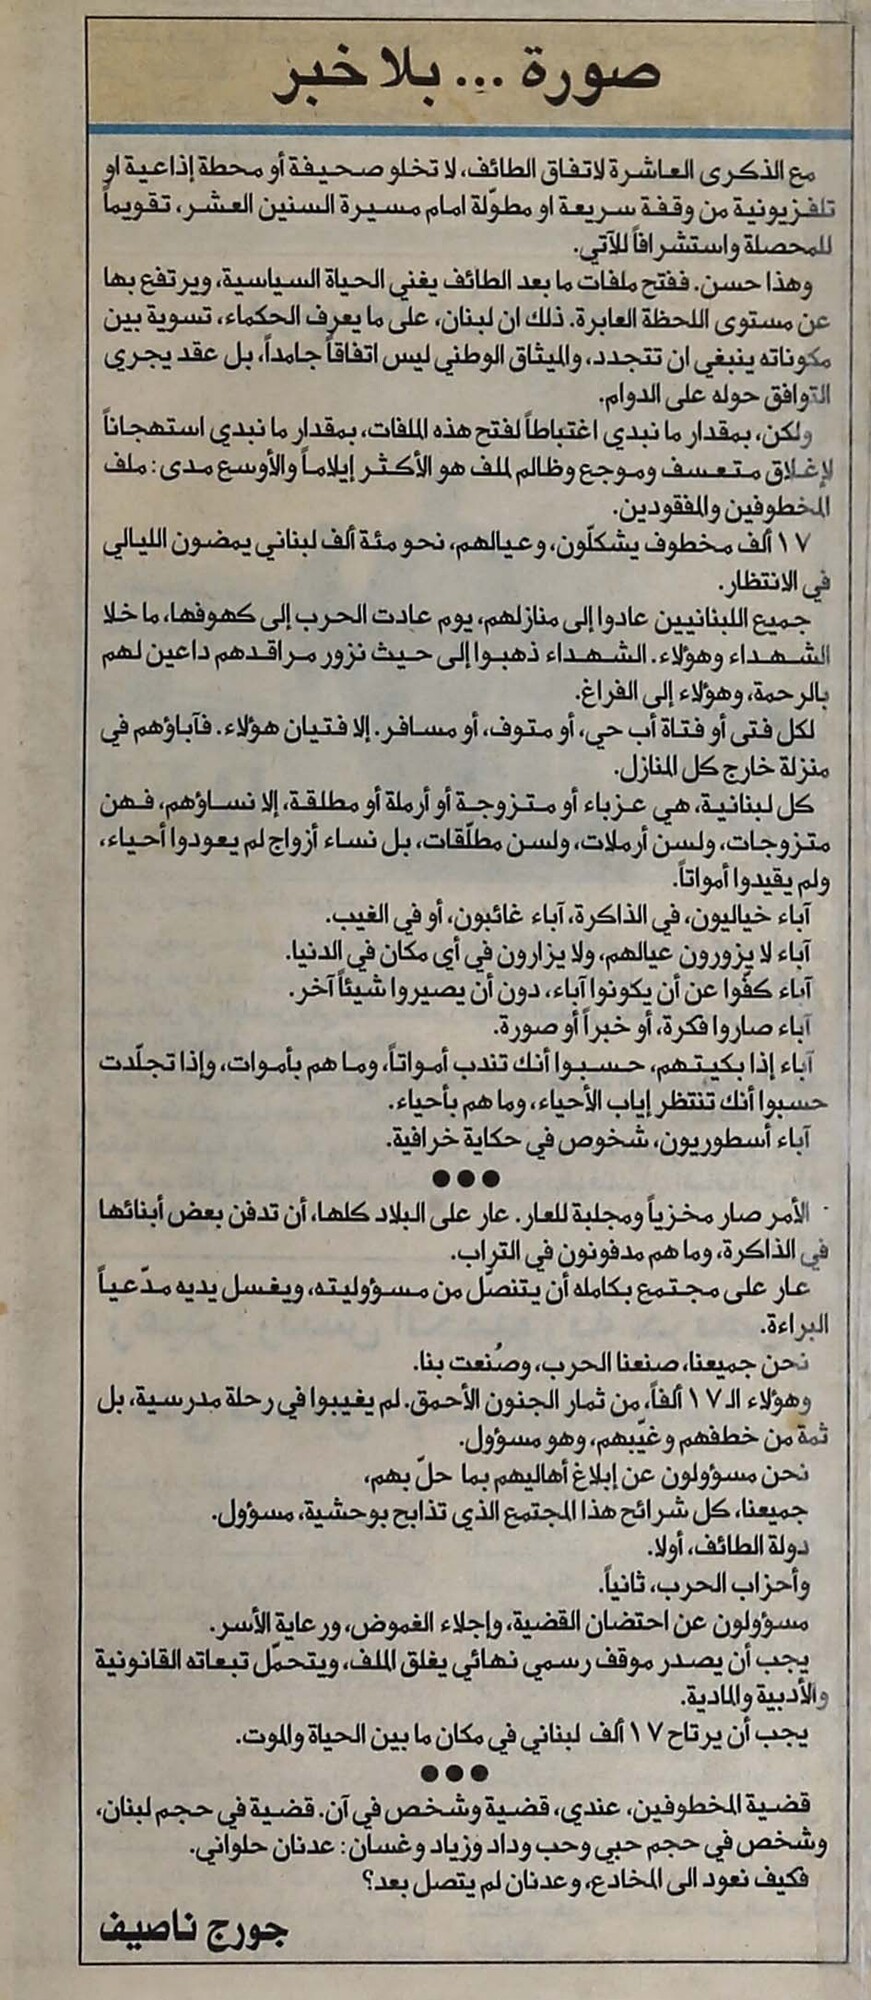 صورة ... بلا خبر
مع الذكرى العاشرة لاتفاق الطائف، لا تخلو صحيفة أو محطة إذاعية او
تلفزيونية من وقفة سريعة او مطوّلة امام مسيرة السنين العشر، تقويماً
للمحصلة واستشرافاً للآتي.
وهذا حسن. ففتح ملفات ما بعد الطائف يغني الحياة السياسية، ويرتفع بها
عن مستوى اللحظة العابرة. ذلك ان لبنان، على ما يعرف الحكماء، تسوية بين
مكوناته ينبغي ان تتجدد، والميثاق الوطني ليس اتفاقاً جامداً، بل عقد يجري
التوافق حوله على الدوام.
ولكن، بمقدار ما نبدي اغتباطاً لفتح هذه الملفات، بمقدار ما نبدي استهجاناً
لإغلاق متعسف وموجع وظالم لملف هو الأكثر إيلاماً والأوسع مدى: ملف
المخطوفين والمفقودين.
١٧ ألف مخطوف يشكلّون، وعيالهم، نحو مئة ألف لبناني يمضون الليالي
في الانتظار.
جميع اللبنانيين عادوا إلى منازلهم، يوم عادت الحرب إلى كهوفها، ما خلا
الشهداء وهؤلاء. الشهداء ذهبوا إلى حيث نزور مراقدهم داعين لهم
بالرحمة، وهؤلاء إلى الفراغ.
لكل فتى أو فتاة أب حي، أو متوف، أو مسافر. إلا فتيان هؤلاء. فآباؤهم في
منزلة خارج كل المنازل.
كل لبنانية، هي عزباء أو متزوجة أو أرملة أو مطلقة، إلا نساؤهم، فهن
متزوجات، ولسن أرملات، ولسن مطلّقات، بل نساء أزواج لم يعودوا أحياء،
ولم يقيدوا أمواتاً.
آباء خياليون، في الذاكرة، آباء غائبون، أو في الغيب.
آباء لا يزورون عيالهم، ولا يزارون في أي مكان في الدنيا.
آباء كفّوا عن أن يكونوا آباء، دون أن يصيروا شيئاً آخر.
آباء صاروا فكرة، أو خبراً أو صورة.
آباء إذا بكيتهم، حسبوا أنك تندب أمواتاً، وما هم بأموات، وإذا تجلّدت
حسبوا أنك تنتظر إياب الأحياء، وما هم بأحياء.
آباء أسطوريون، شخوص في حكاية خرافية.
●●●
الأمر صار مخزياً ومجلبة للعار. عار على البلاد كلها، أن تدفن بعض أبنائها
في الذاكرة، وما هم مدفونون في التراب.
عار على مجتمع بكامله أن يتنصّل من مسؤوليته، ويغسل يديه مدّعياً
البراءة.
نحن جميعنا، صنعنا الحرب، وصُنعت بنا.
وهؤلاء الـ ١٧ ألفاً، من ثمار الجنون الأحمق. لم يغيبوا في رحلة مدرسية، بل
ثمة من خطفهم وغيّبهم، وهو مسؤول.
نحن مسؤولون عن إبلاغ أهاليهم بما حلّ بهم،
جميعنا، كل شرائح هذا المجتمع الذي تذابح بوحشية، مسؤول.
دولة الطائف، أولا.
وأحزاب الحرب، ثانياً.
مسؤولون عن احتضان القضية، وإجلاء الغموض، ورعاية الأسر.
يجب أن يصدر موقف رسمي نهائي يغلق الملف، ويتحمّل تبعاته القانونية
والأدبية والمادية.
يجب أن يرتاح ١٧ ألف لبناني في مكان ما بين الحياة والموت.
●●●
قضية المخطوفين، عندي، قضية وشخص في آن. قضية في حجم لبنان،
وشخص في حجم حبي وحب وداد وزياد وغسان: عدنان حلواني.
فكيف نعود الى المخادع، وعدنان لم يتصل بعد؟
جورج ناصيف